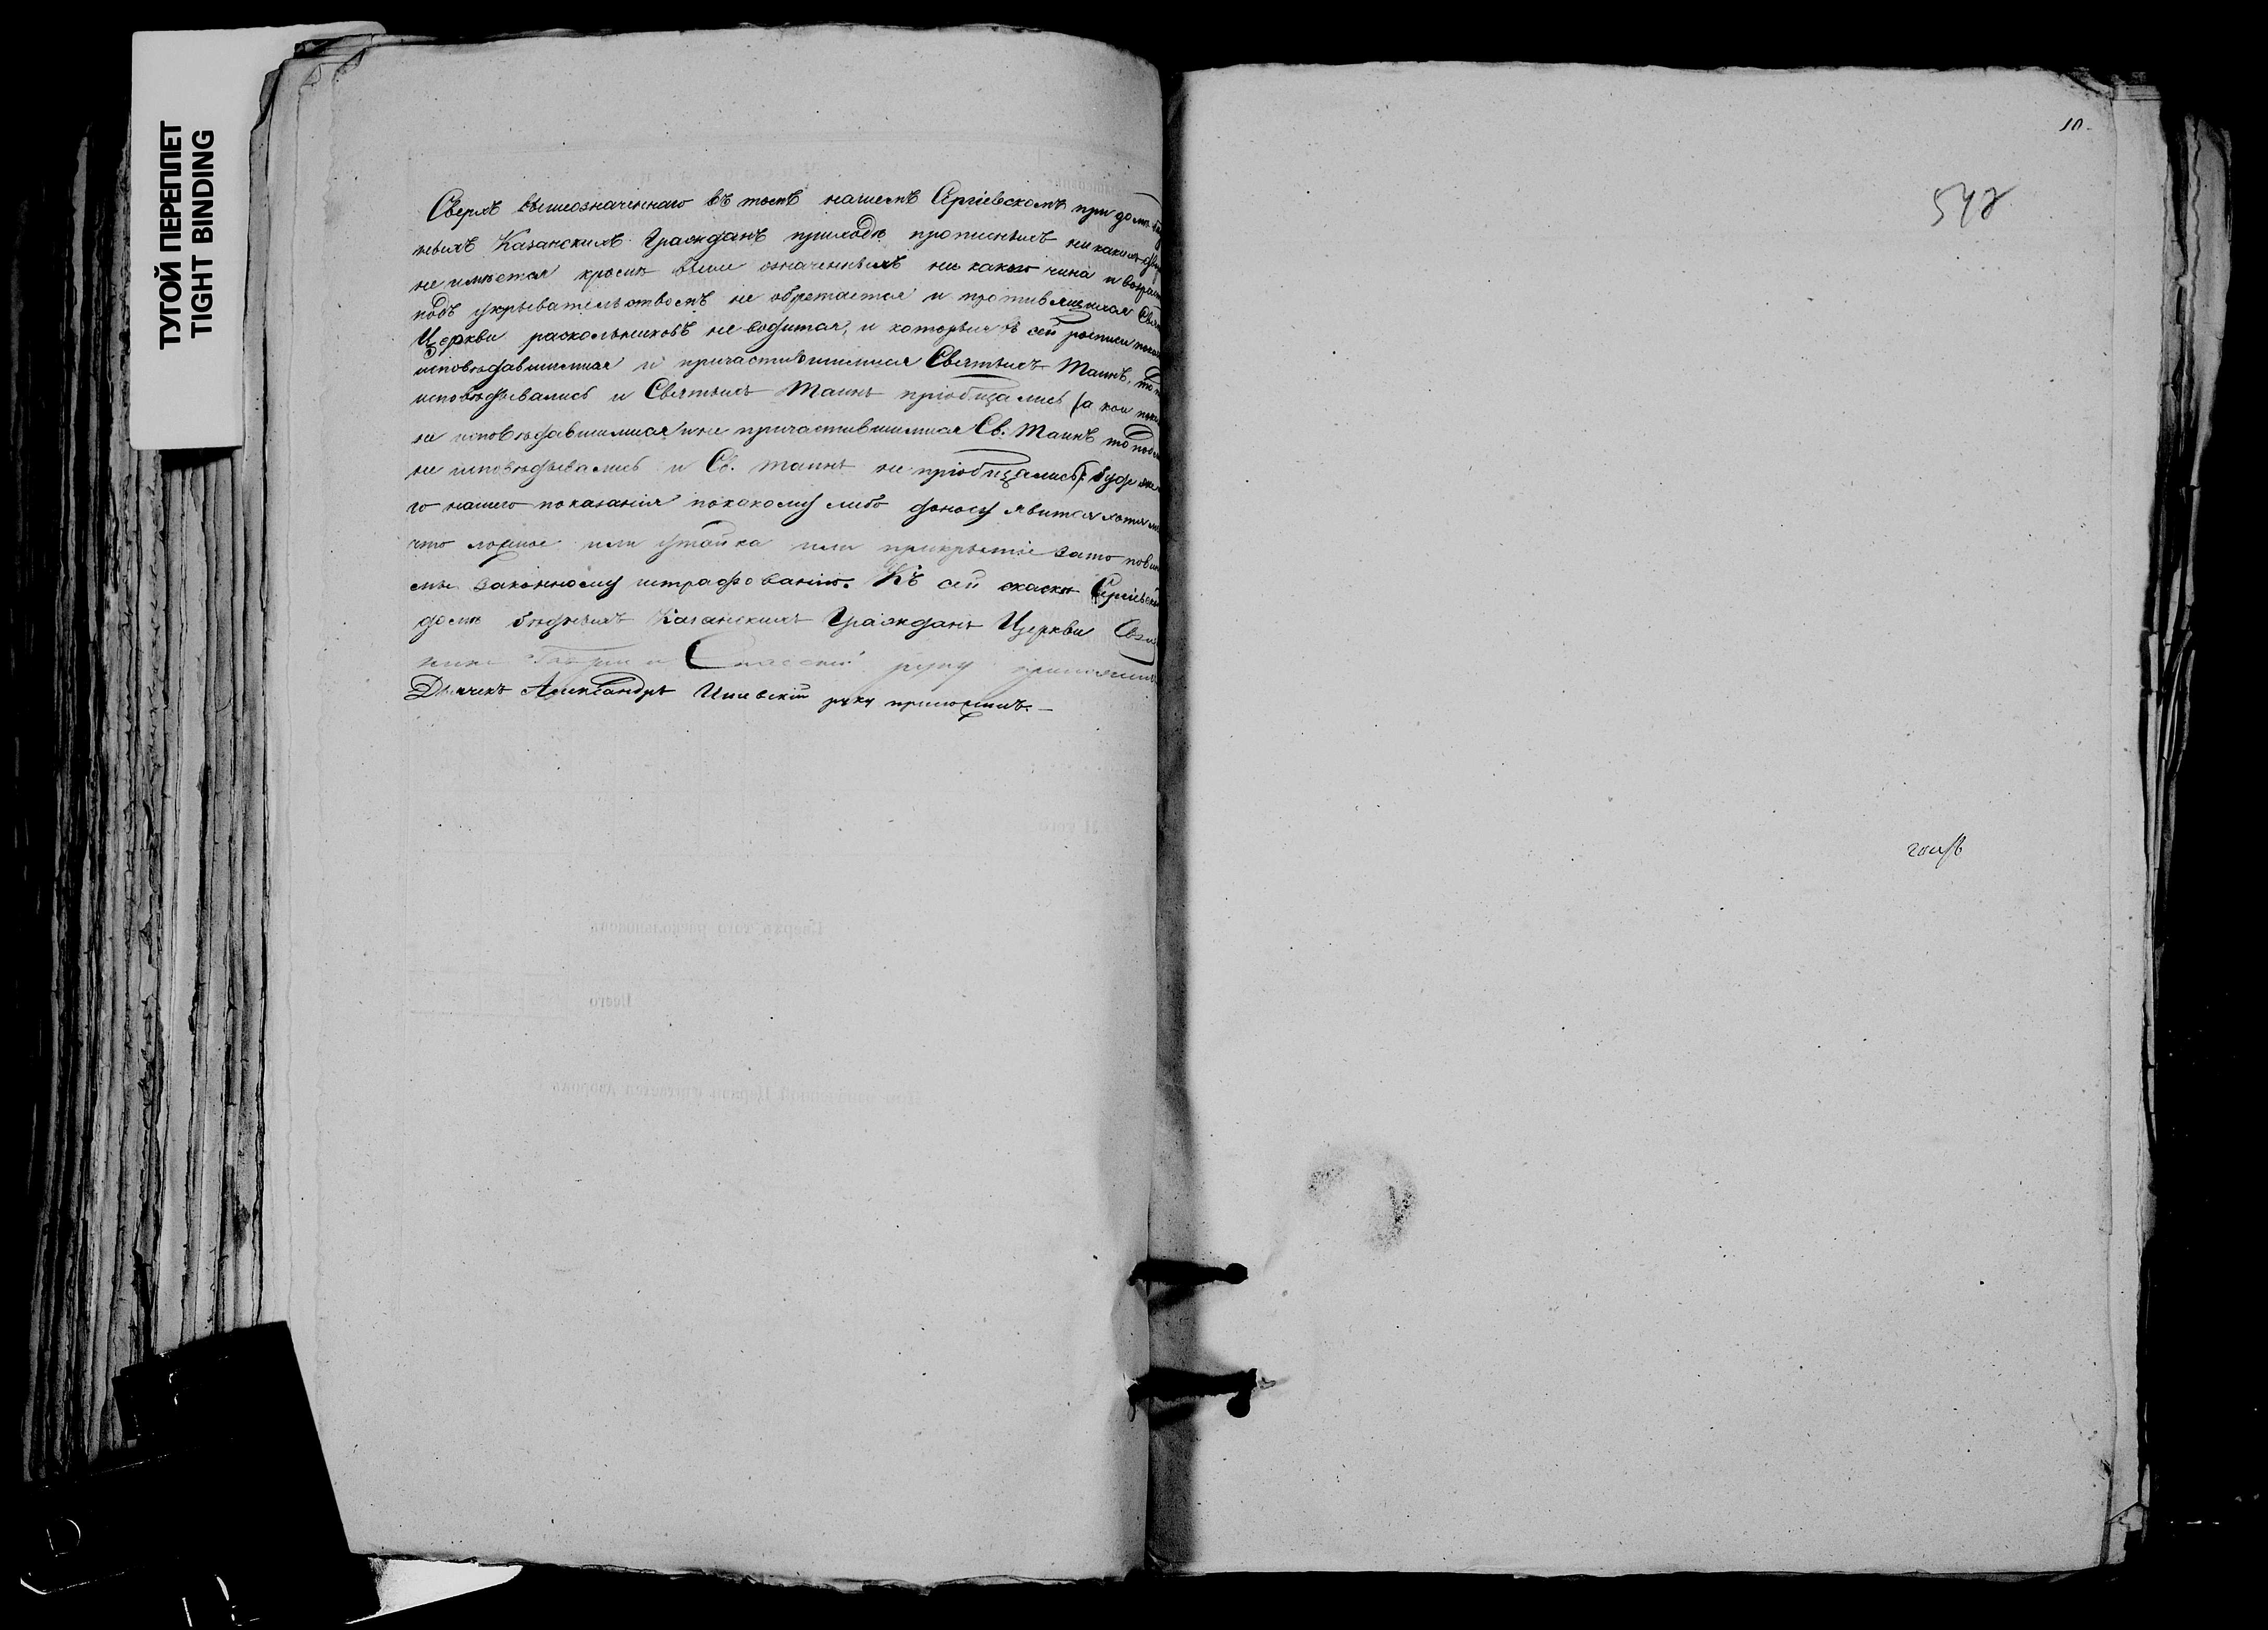 ТУГОЙ ПЕРЕПЛЕТ
TIGHT BINDING
Сверхъ вышеозначеннаго въ томъ нашемъ Сергіевскомъ при домѣ
ныхъ Казанскихъ Гражданъ приходѣ прописныхъ никакихъ
не имѣется кромѣ выше означенныхъ ни какого чина и
подъ укрывательствомъ не обретается и противящихся
Церкви раскольниковъ не водится, и которыя въ сей росписи
исповѣдавшимися и причастившимися Святыхъ Таинъ,
исповѣдывались и Святыхъ Таинъ пріобщались /а кои
не исповѣдавшимися и не причастившимися Св. Таинъ то
не исповѣдывались и Св. таинъ не пріобщались/. буде
го нашего показанія по какому либо доносу явится хотя
что ложное или утайка или прикрытіе за то
мы законному штрафованію. Къ сей сказкѣ
домѣ бѣдныхъ Казанскихъ Гражданъ Церкви
Спасскій руку
Дьячекъ Александръ руку приложилъ.
10
542